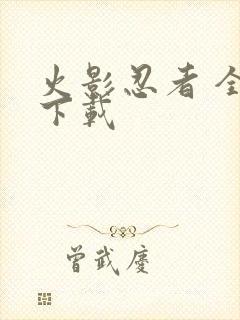 火影忍者全
下载
曾武庆